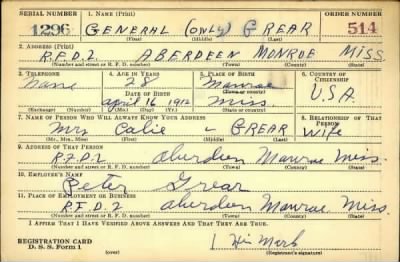 SERIAL NUMBER 1. NAME (Print) ORDER NUMBER
1296 GENERAL (only) GREAR 514
(First) (Middle) (Last)
2. ADDRESS (Print)
R.F.D.2 ABERDEEN MONROE MISS
(Number and street or R. F. D. number) (Town) (County) (State)
3. TELEPHONE 4. AGE IN YEARS 5. PLACE OF BIRTH 6. COUNTRY OF CITIZENSHIP
None 28 Monroe
DATE OF BIRTH (Town or county)
April 16 1912 Miss. U.S.A.
(Exchange) (Number) (Mo.) (Day) (Yr.) (State or country)
7. NAME OF PERSON WHO WILL ALWAYS KNOW YOUR ADDRESS 8. RELATIONSHIP OF THAT PERSON
Mrs Calie - GREAR Wife
(Mr., Mrs., Miss) (First) (Middle) (Last)
9. ADDRESS OF THAT PERSON
R.F.D.2 Aberdeen Monroe Miss.
(Number and street or R. F. D. number) (Town) (County) (State)
10. EMPLOYER'S NAME
Peter Grear
11. PLACE OF EMPLOYMENT OR BUSINESS
R.F.D.2 Aberdeen Monroe Miss.
(Number and street or R. F. D. number) (Town) (County) (State)
I AFFIRM THAT I HAVE VERIFIED ABOVE ANSWERS AND THAT THEY ARE TRUE.
REGISTRATION CARD
D. S. S. Form 1 (over) His Mark
(Registrant's signature)